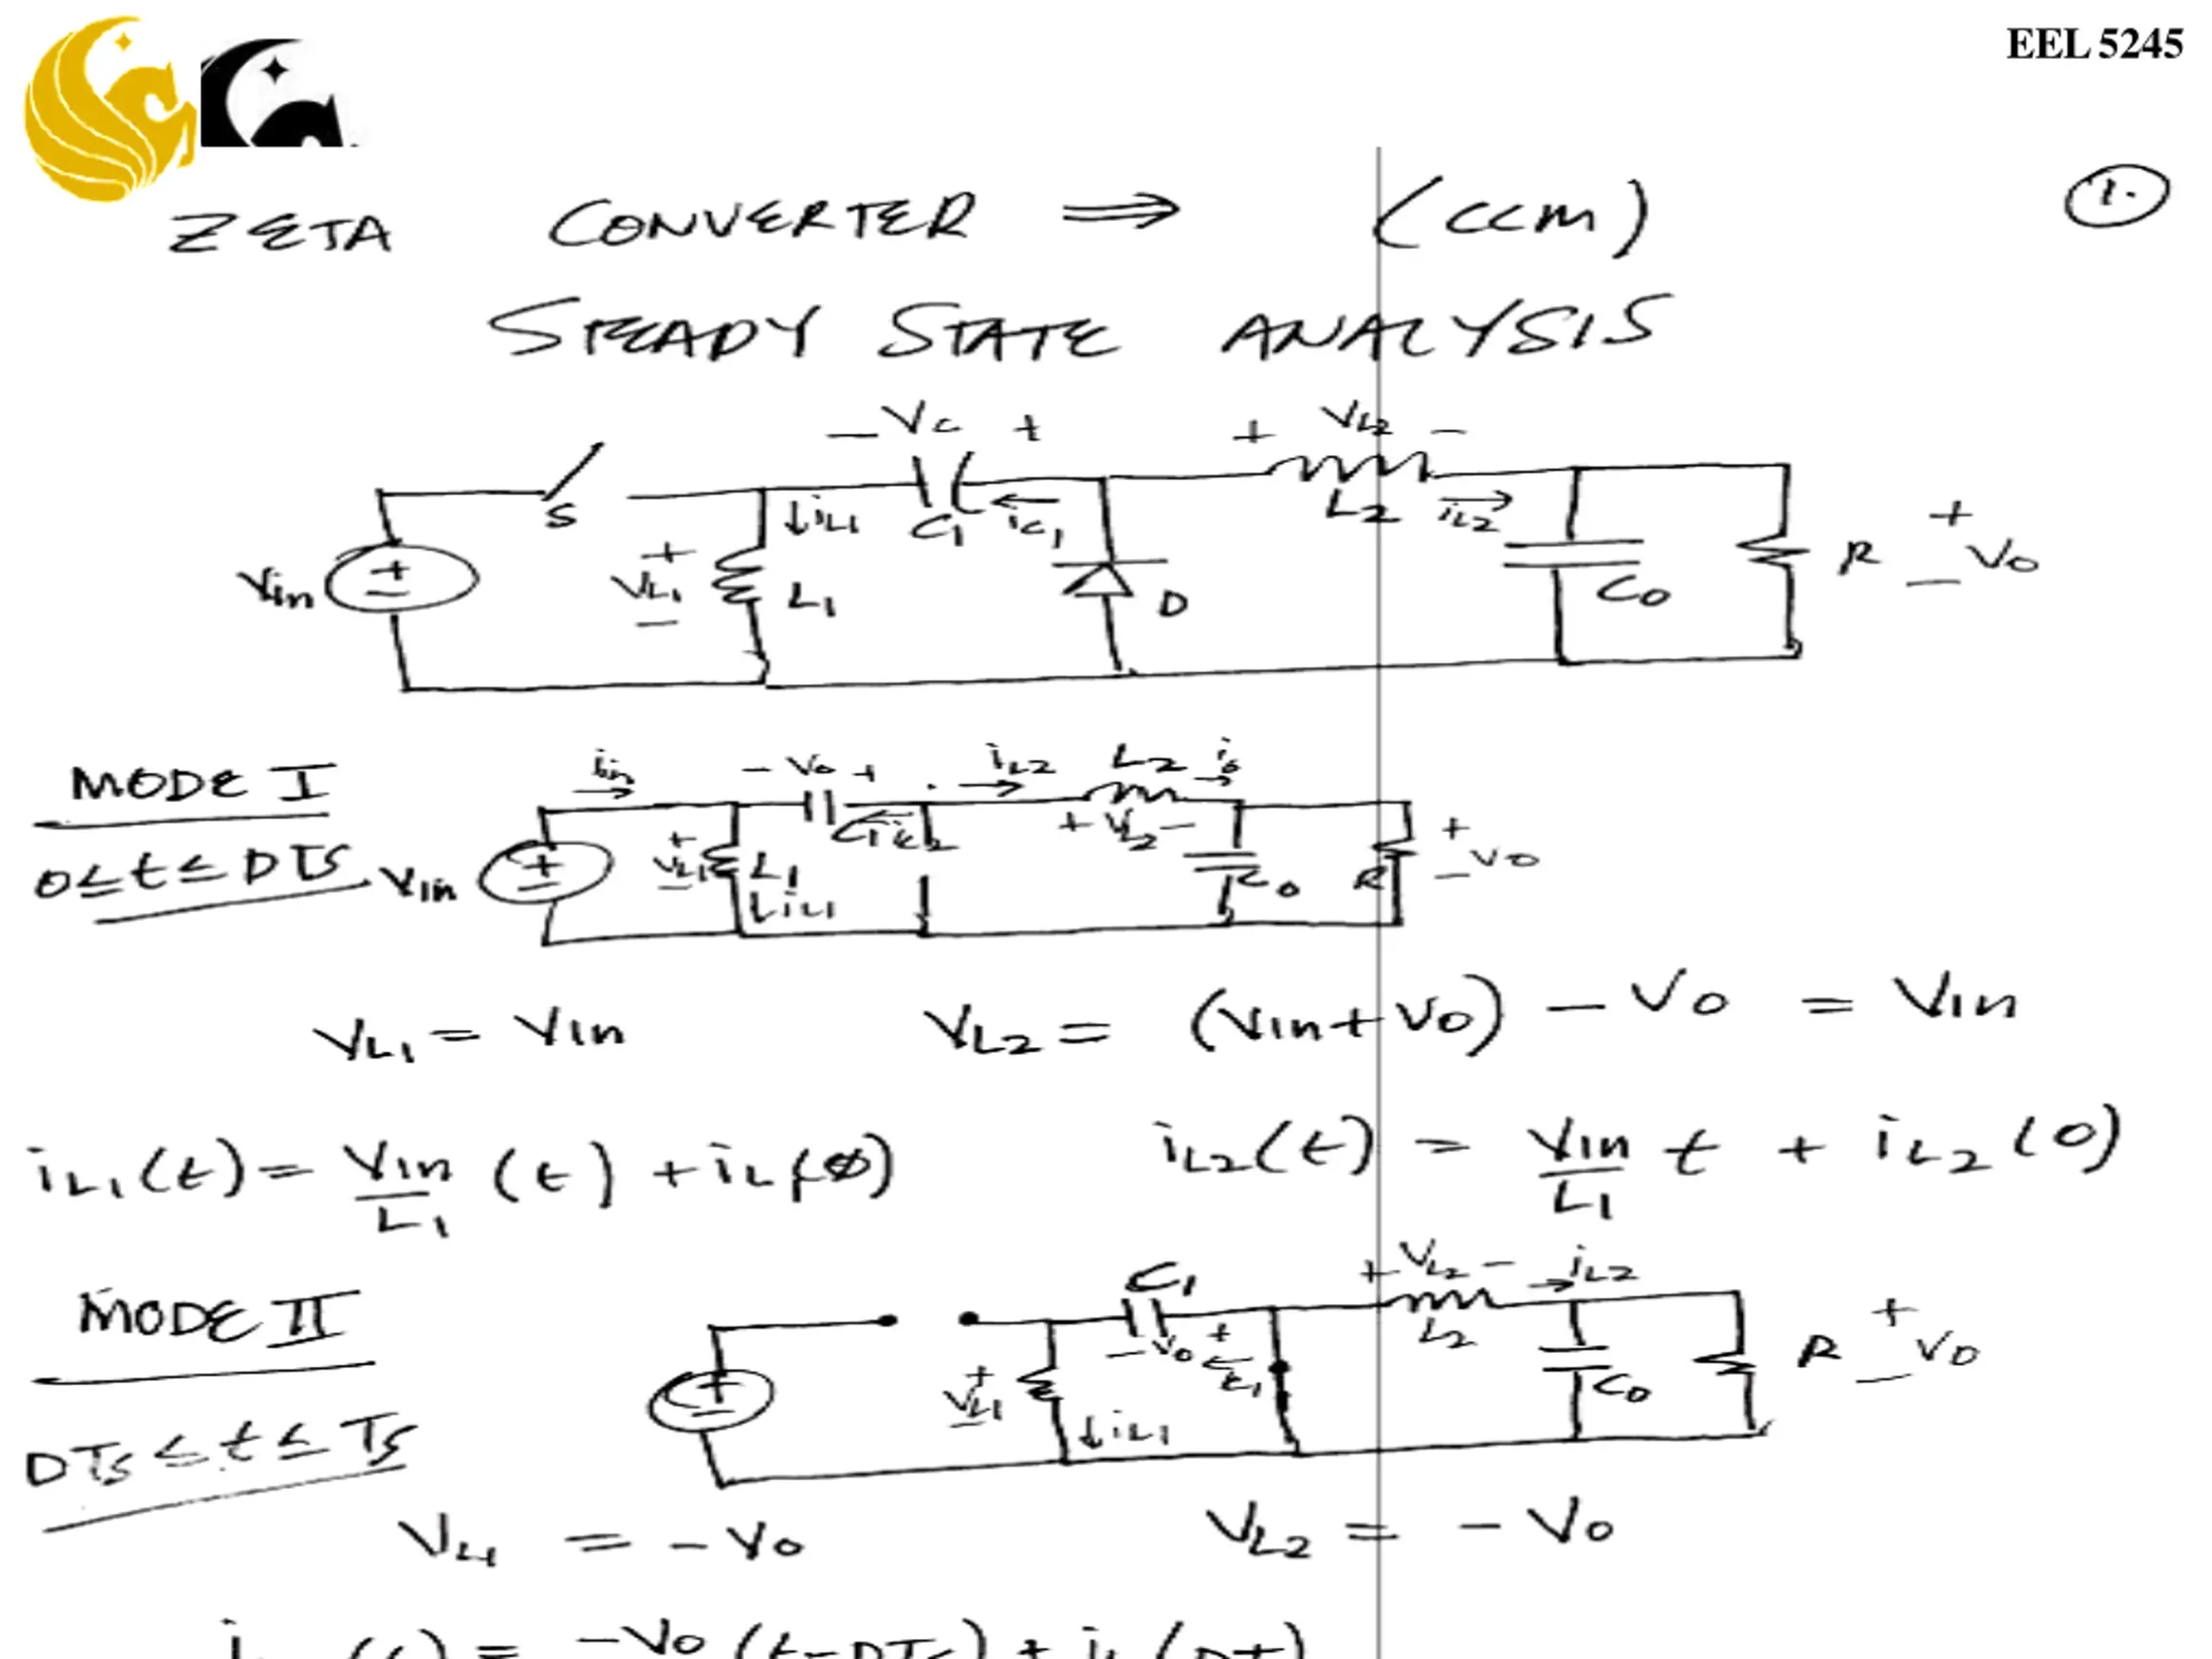 EEL 5245
1.
ZETA CONVERTER ⇒ (CCM)
STEADY STATE ANALYSIS
− Vc + + VL2 −
S ↓iL1 C1 ← iC1 L2 → iL2
Vin + − + VL1 − L1 D Co R + Vo −
MODE I
0≤t≤DTS
iin → − Vo + → iL2 L2 io →
Vin + − + VL1 − L1 ↓iL1 C1 + VL2 − Co R + Vo −
VL1 = Vin VL2 = (Vin+Vo) − Vo = Vin
iL1(t) = Vin/L1 (t) + iL(0) iL2(t) = Vin/L1 t + iL2(0)
MODE II
DTs ≤ t ≤ Ts
C1 + VL2 − → iL2
+ − + VL1 − ↓iL1 − Vo + ← L2 Co R + Vo −
VL1 = − Vo VL2 = − Vo
= −Vo (t−DTs) + iL(DT)